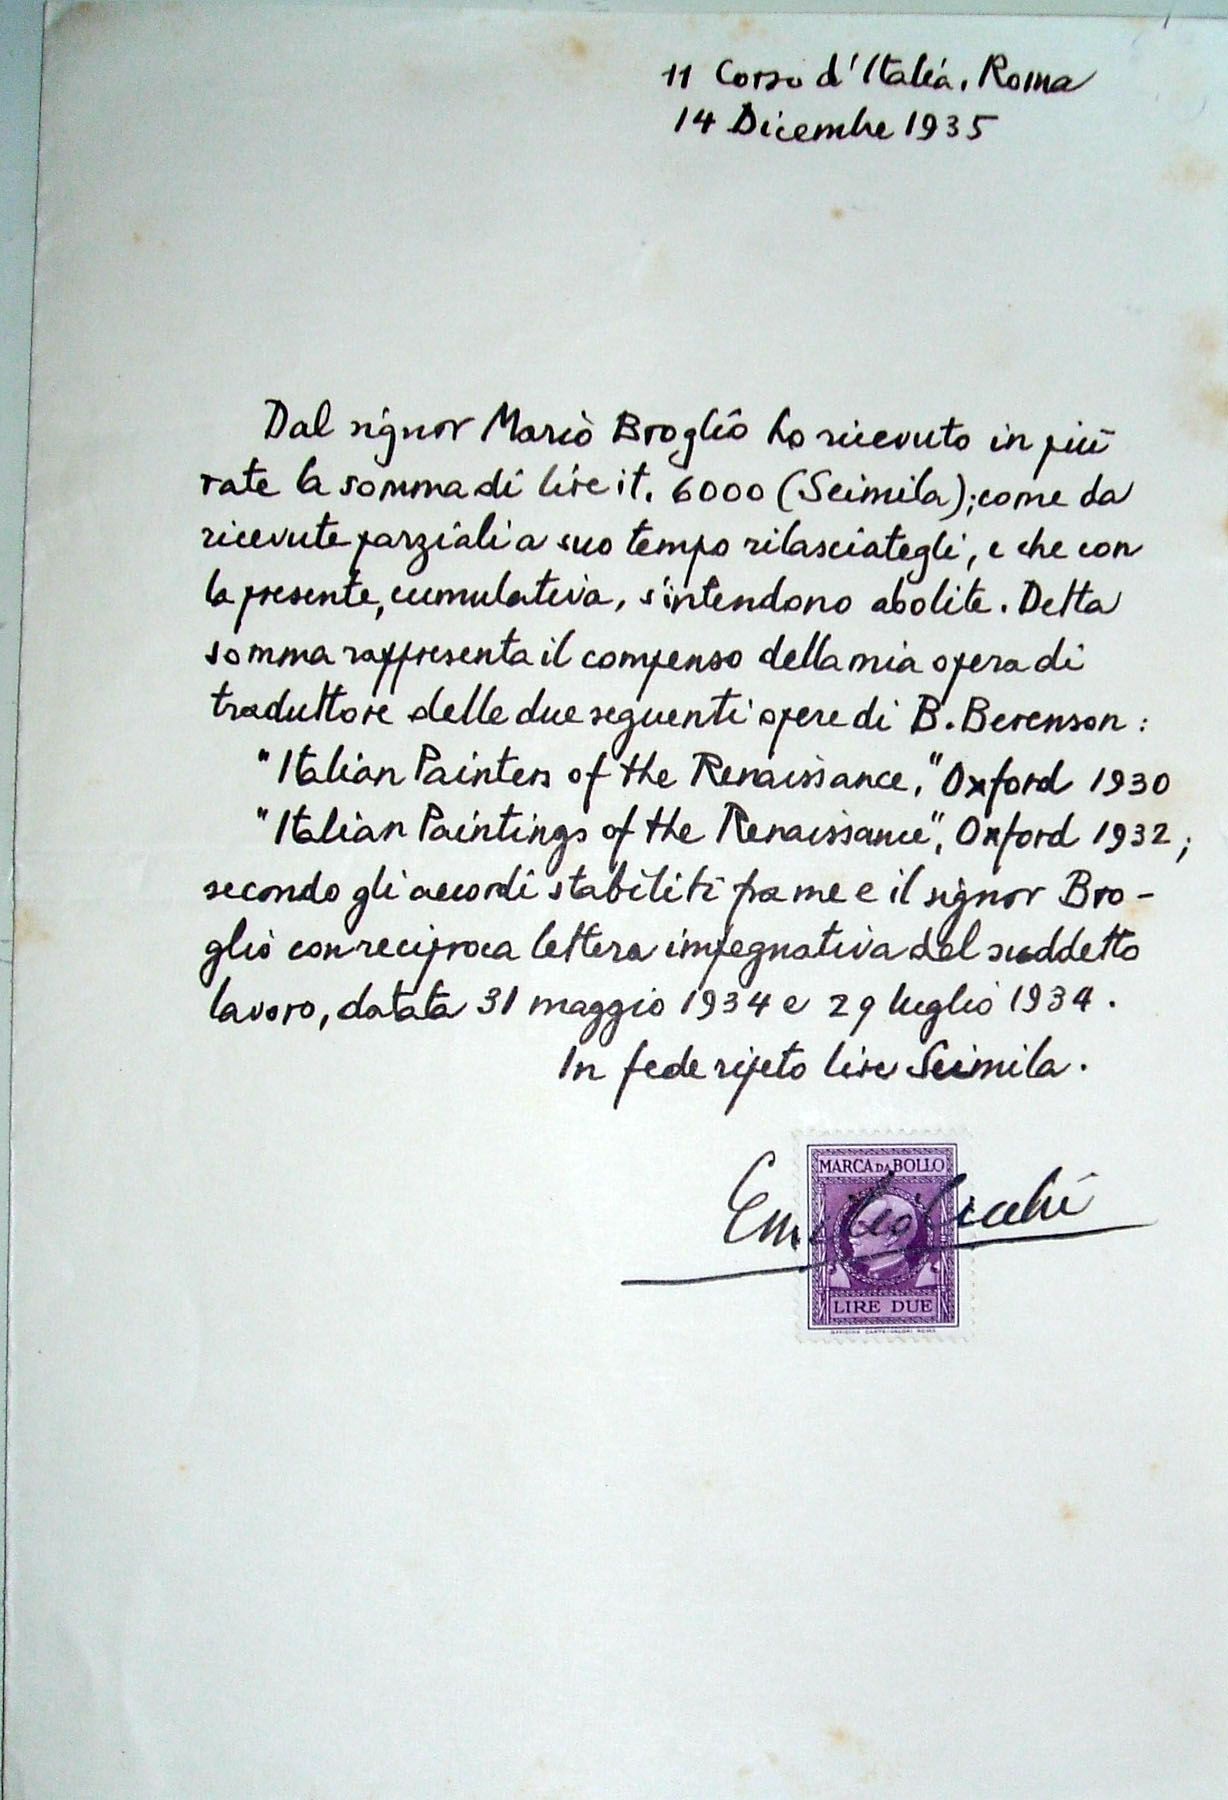 11 Corso d'Italia, Roma
14 Dicembre 1935
Dal signor Mario Broglio ho ricevuto in più
rate la somma di lire it. 6000 (Seimila); come da
ricevute parziali a suo tempo rilasciategli, e che con
la presente, cumulativa, s'intendono abolite. Detta
somma rappresenta il compenso della mia opera di
traduttore delle due seguenti opere di B. Berenson:
"Italian Painters of the Renaissance," Oxford 1930
"Italian Paintings of the Renaissance", Oxford 1932;
secondo gli accordi stabiliti fra me e il signor Bro-
glio con reciproca lettera impegnativa del suddetto
lavoro, datata 31 maggio 1934 e 29 luglio 1934.
In fede ripeto lire Seimila.
MARCA DA BOLLO
Emilio Cecchi
LIRE DUE
OFFICINA CARTE-VALORI ROMA